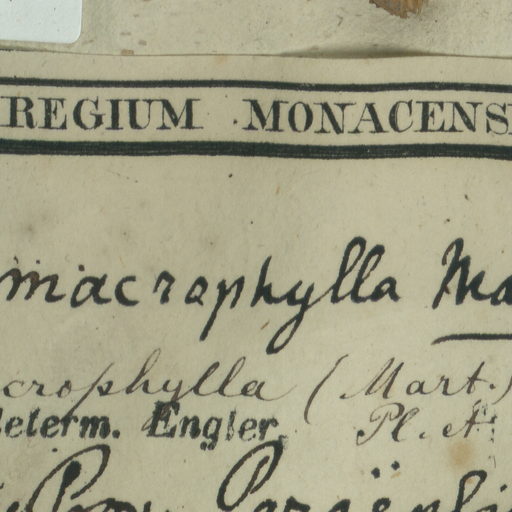 REGIUM MONACENS
macrophylla Ma
crophylla (Mart.)
determ. Engler. Pl.